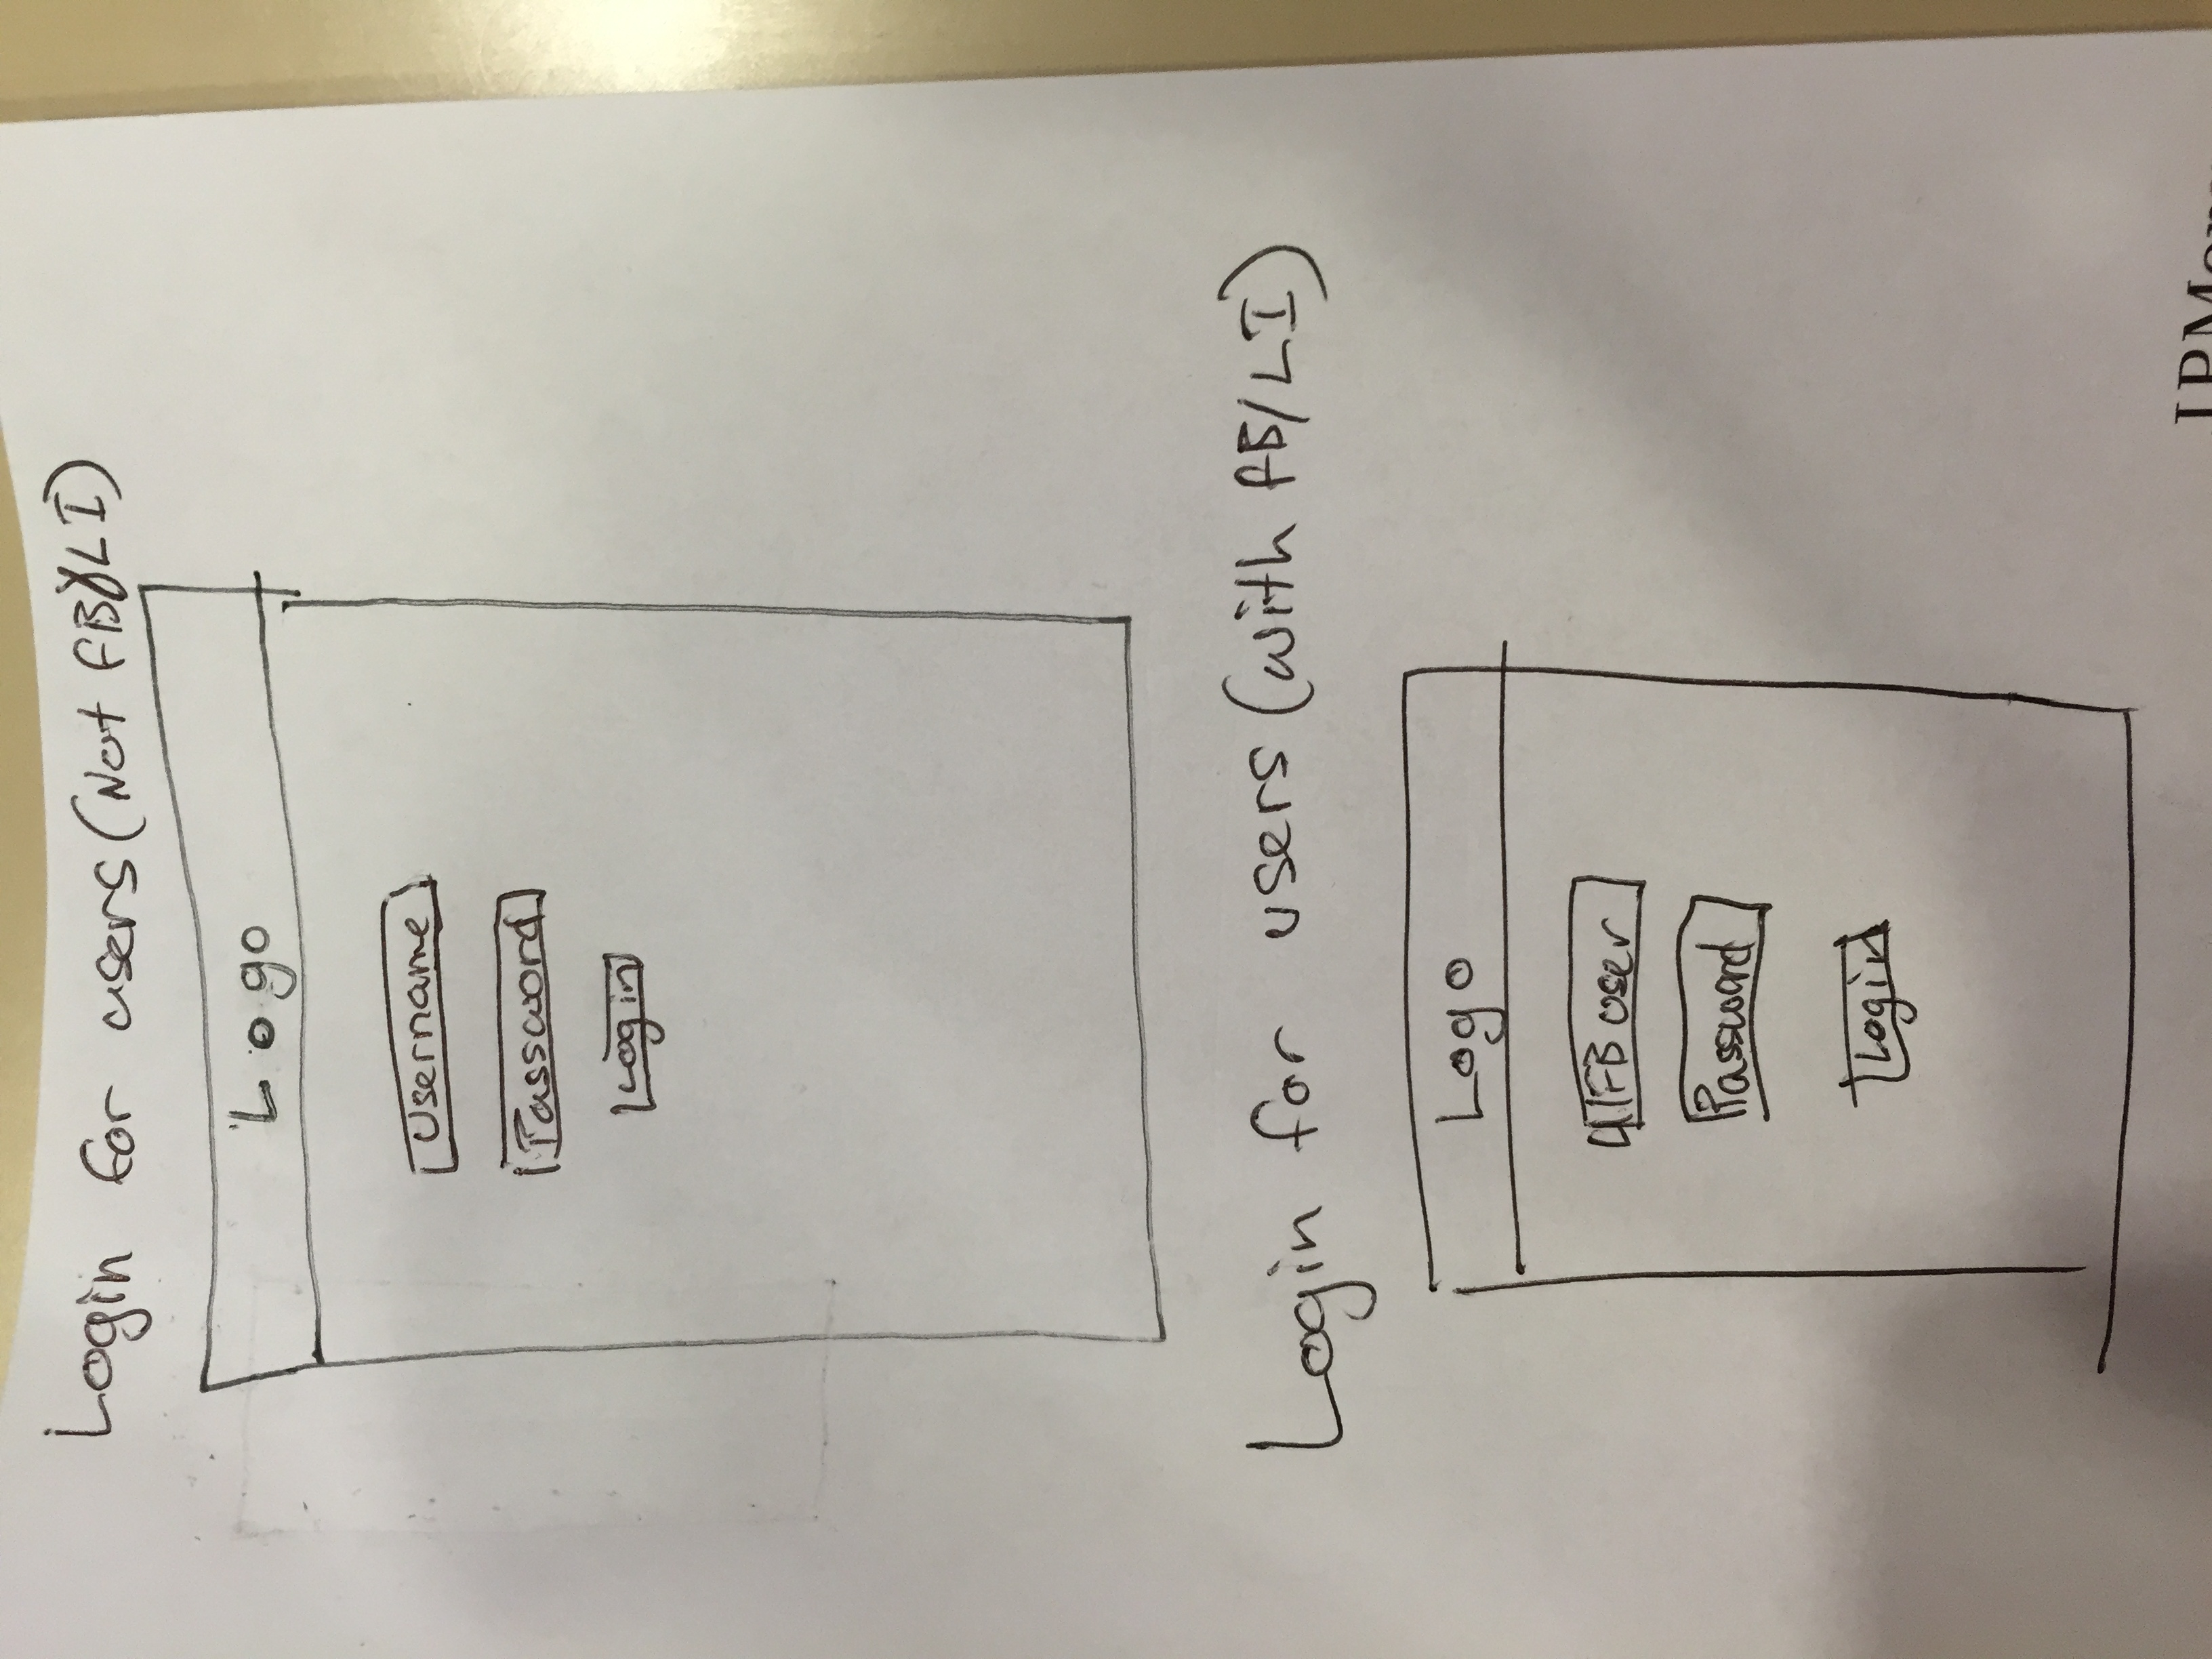 Login for users (Not FB/LI)
Logo
Username
Password
Login
Login for users (with FB/LI)
Logo
FB user
Password
Login